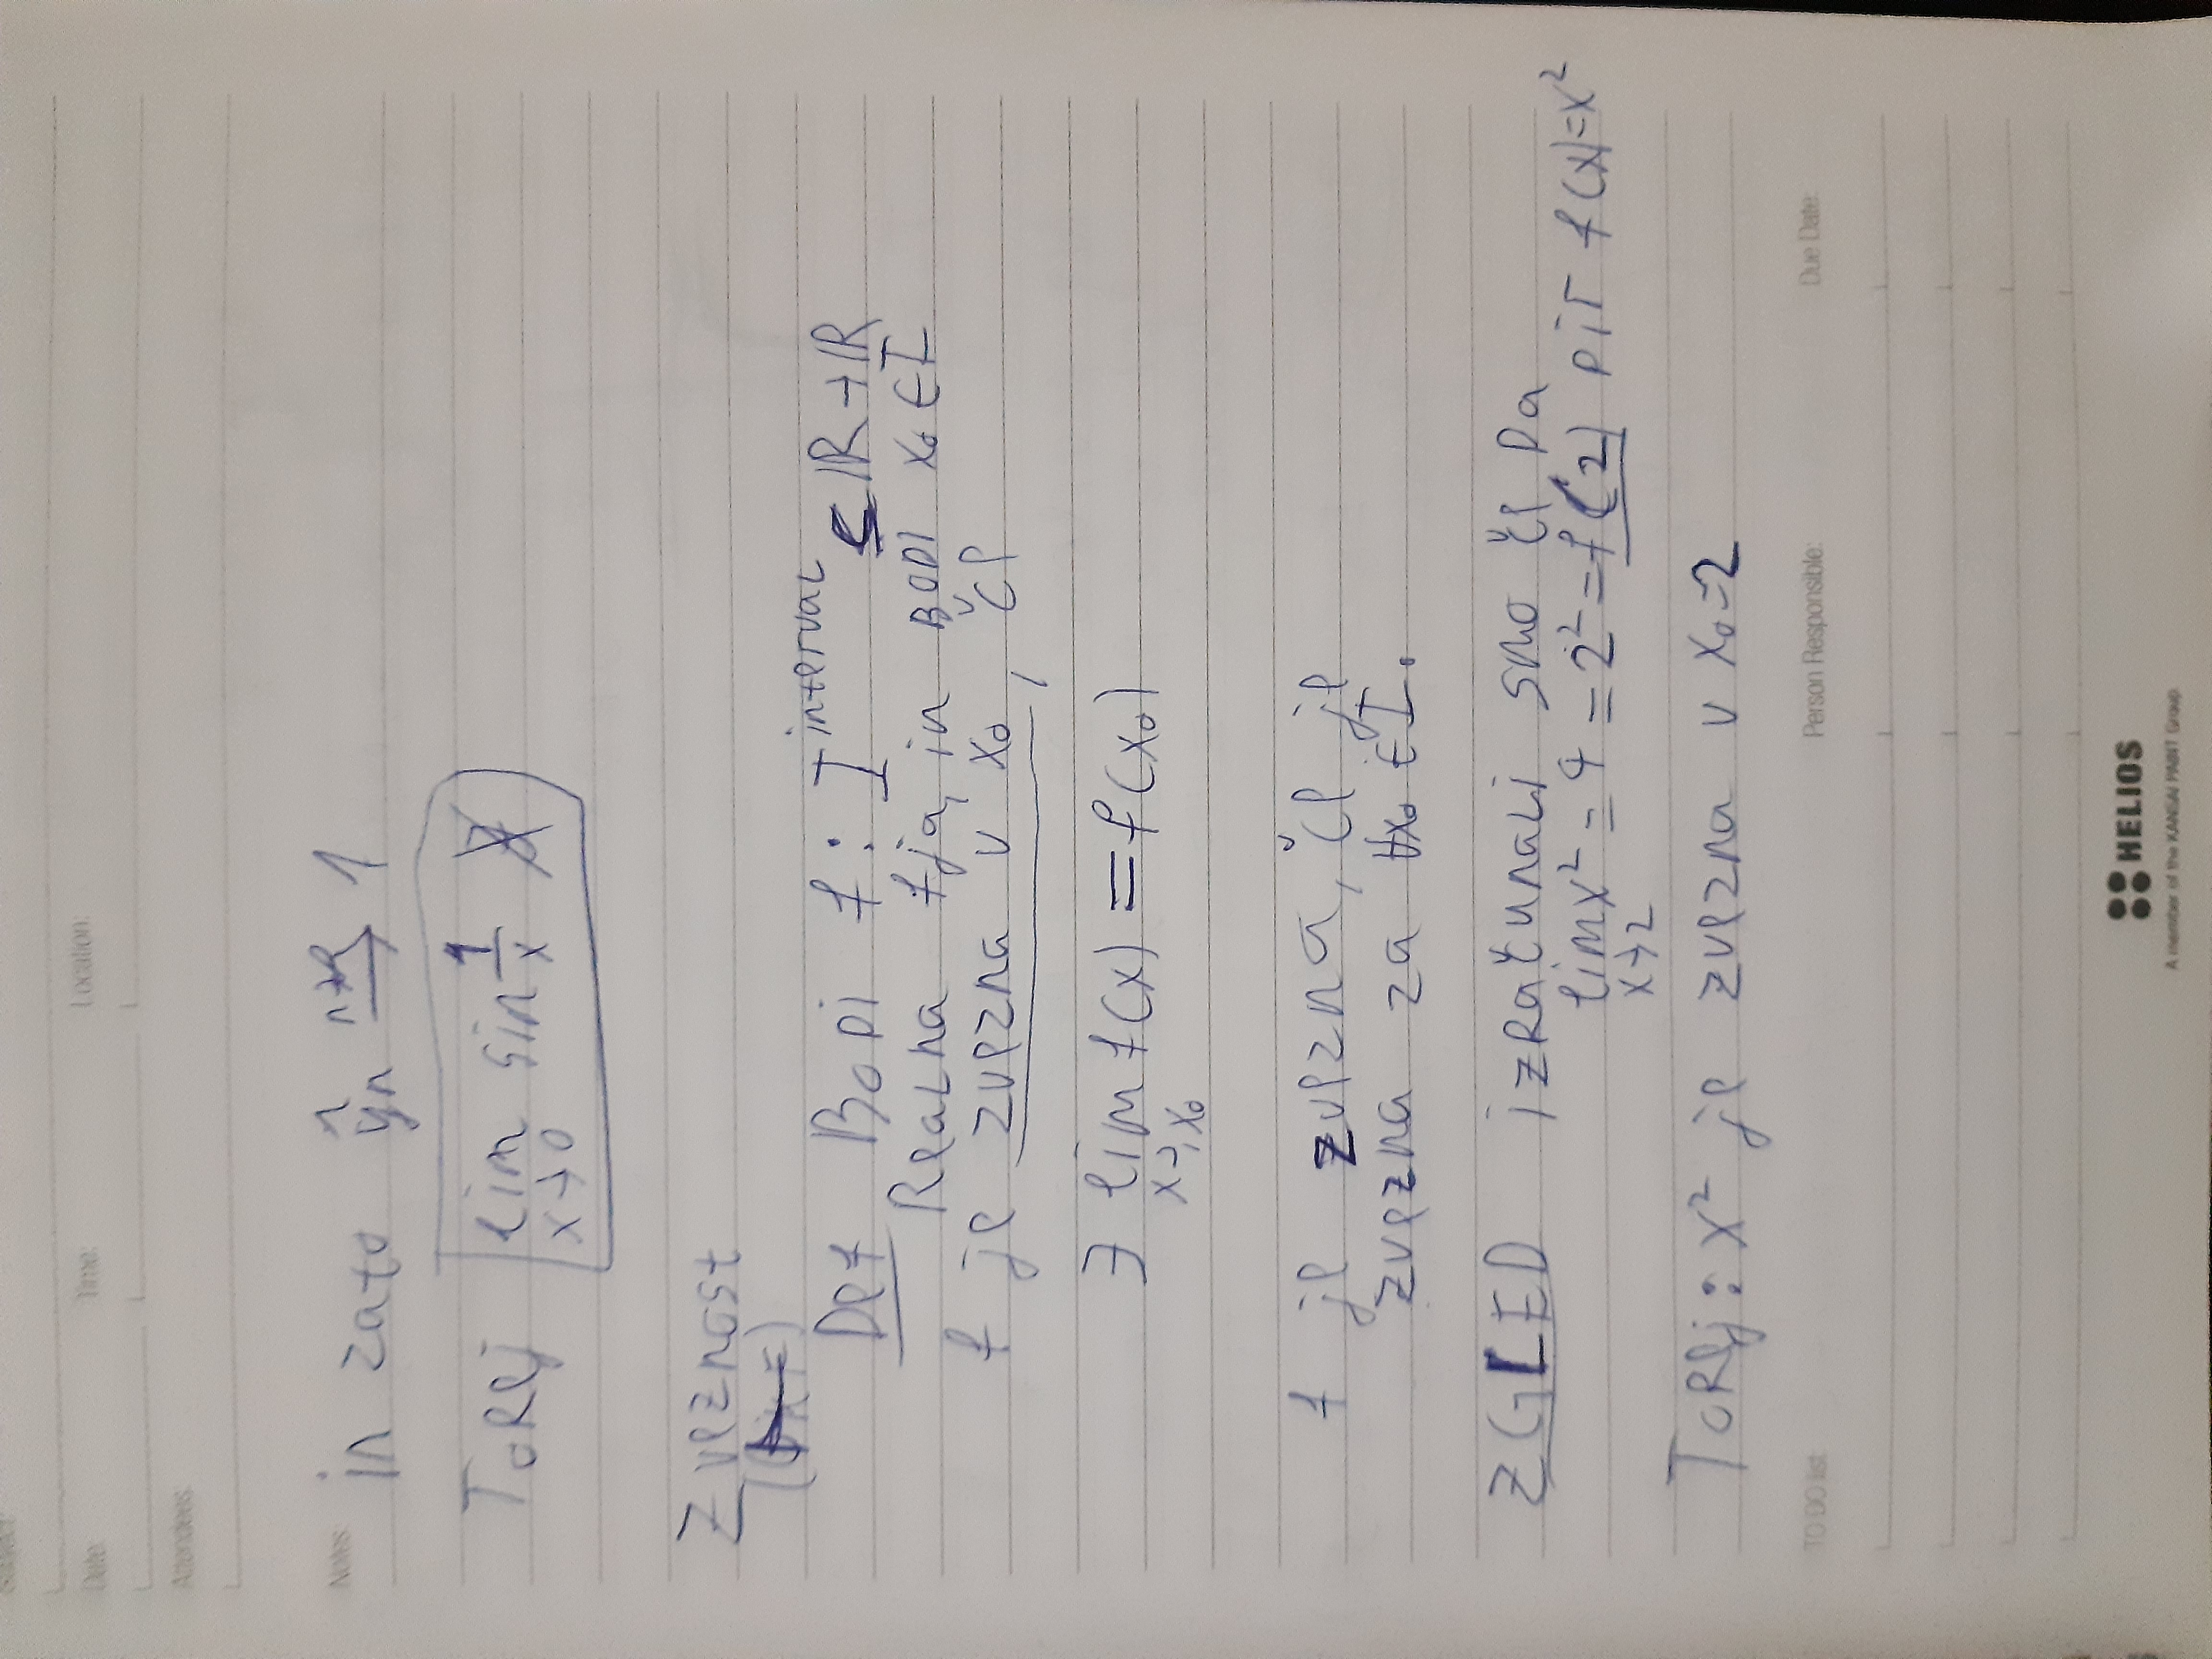 Subject:
Date:
Time:
Location:
Attendees:
Notes:
in zato ŷn → 1
Torej lim sin 1/x ∄
x→0
Zveznost
Def Bodi f: I interval ⊆ ℝ → ℝ
Realna fja, in Bodi x₀ ∈ I
f je zvezna v x₀, če
∃ lim f(x) = f(x₀)
x→x₀
f je zvezna, če je
zvezna za ∀x₀ ∈ I.
ZGLED izračunali smo če Da
lim x² = 4 = 2² = f(2) f(x)=x²
x→2
Torej: x² je zvezna v x₀=2
TO DO list:
Person Responsible:
Due Date:
HELIOS
A member of the KANSAI PAINT Group